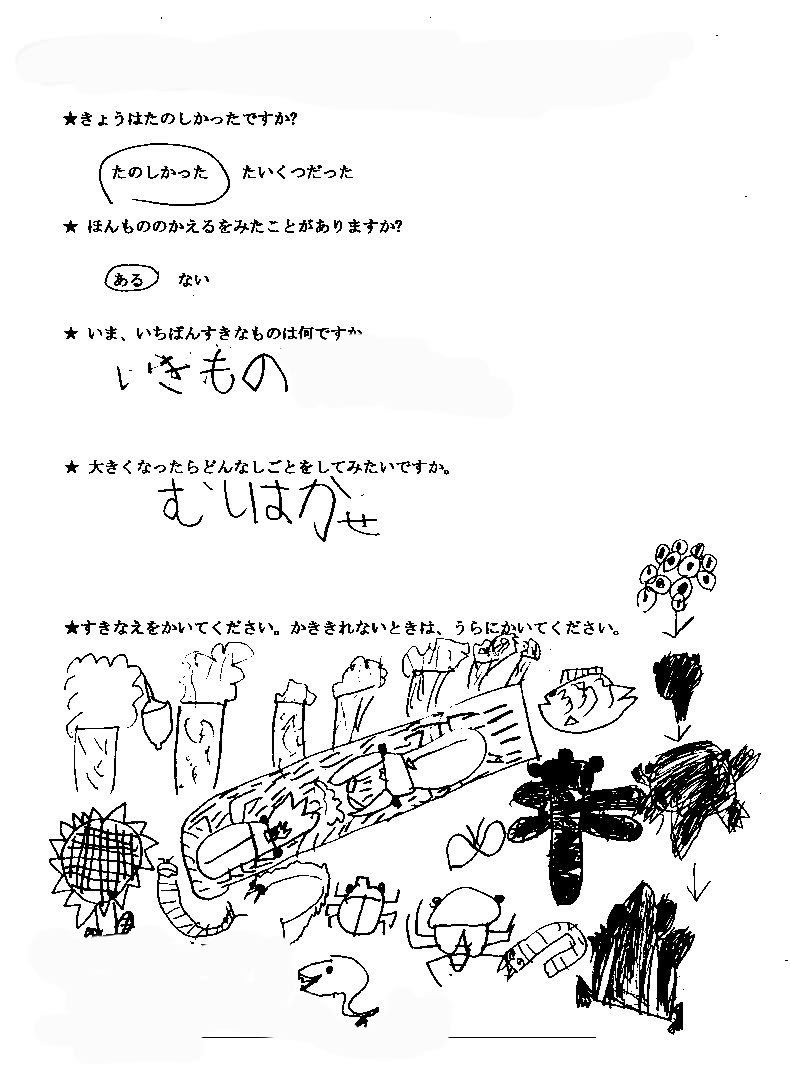 ★きょうはたのしかったですか?
たのしかった たいくつだった
★ ほんもののかえるをみたことがありますか?
ある ない
★ いま、いちばんすきなものは何ですか
いきもの
★ 大きくなったらどんなしごとをしてみたいですか。
むしはかせ
★すきなえをかいてください。かききれないときは、うらにかいてください。